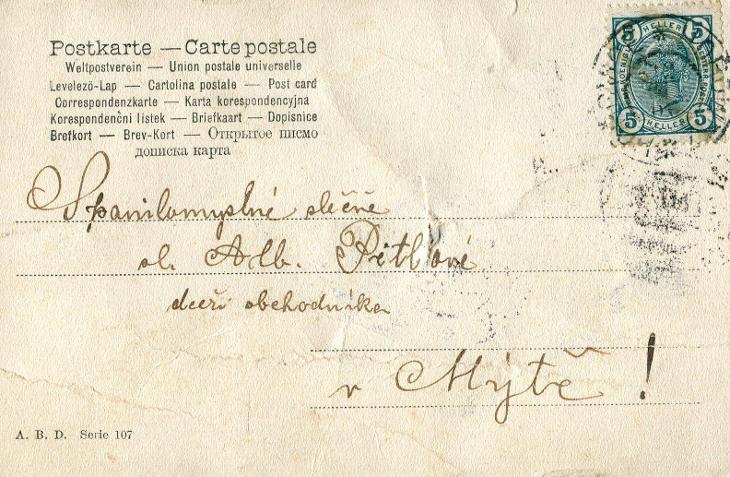 Postkarte — Carte postale
Weltpostverein — Union postale universelle
Levelező-Lap — Cartolina postale — Post card
Correspondenzkarte — Karta korespondencyjna
Korespondenční listek — Briefkaart — Dopisnice
Brefkort — Brev-Kort — Открытое писмо
дописка карта
5 HELLER 5
5 HELLER 5
Spanilomyslné slečně
sl. Adb. Pitlové
dceři obchodníka
v Mýtě!
A. B. D. Serie 107